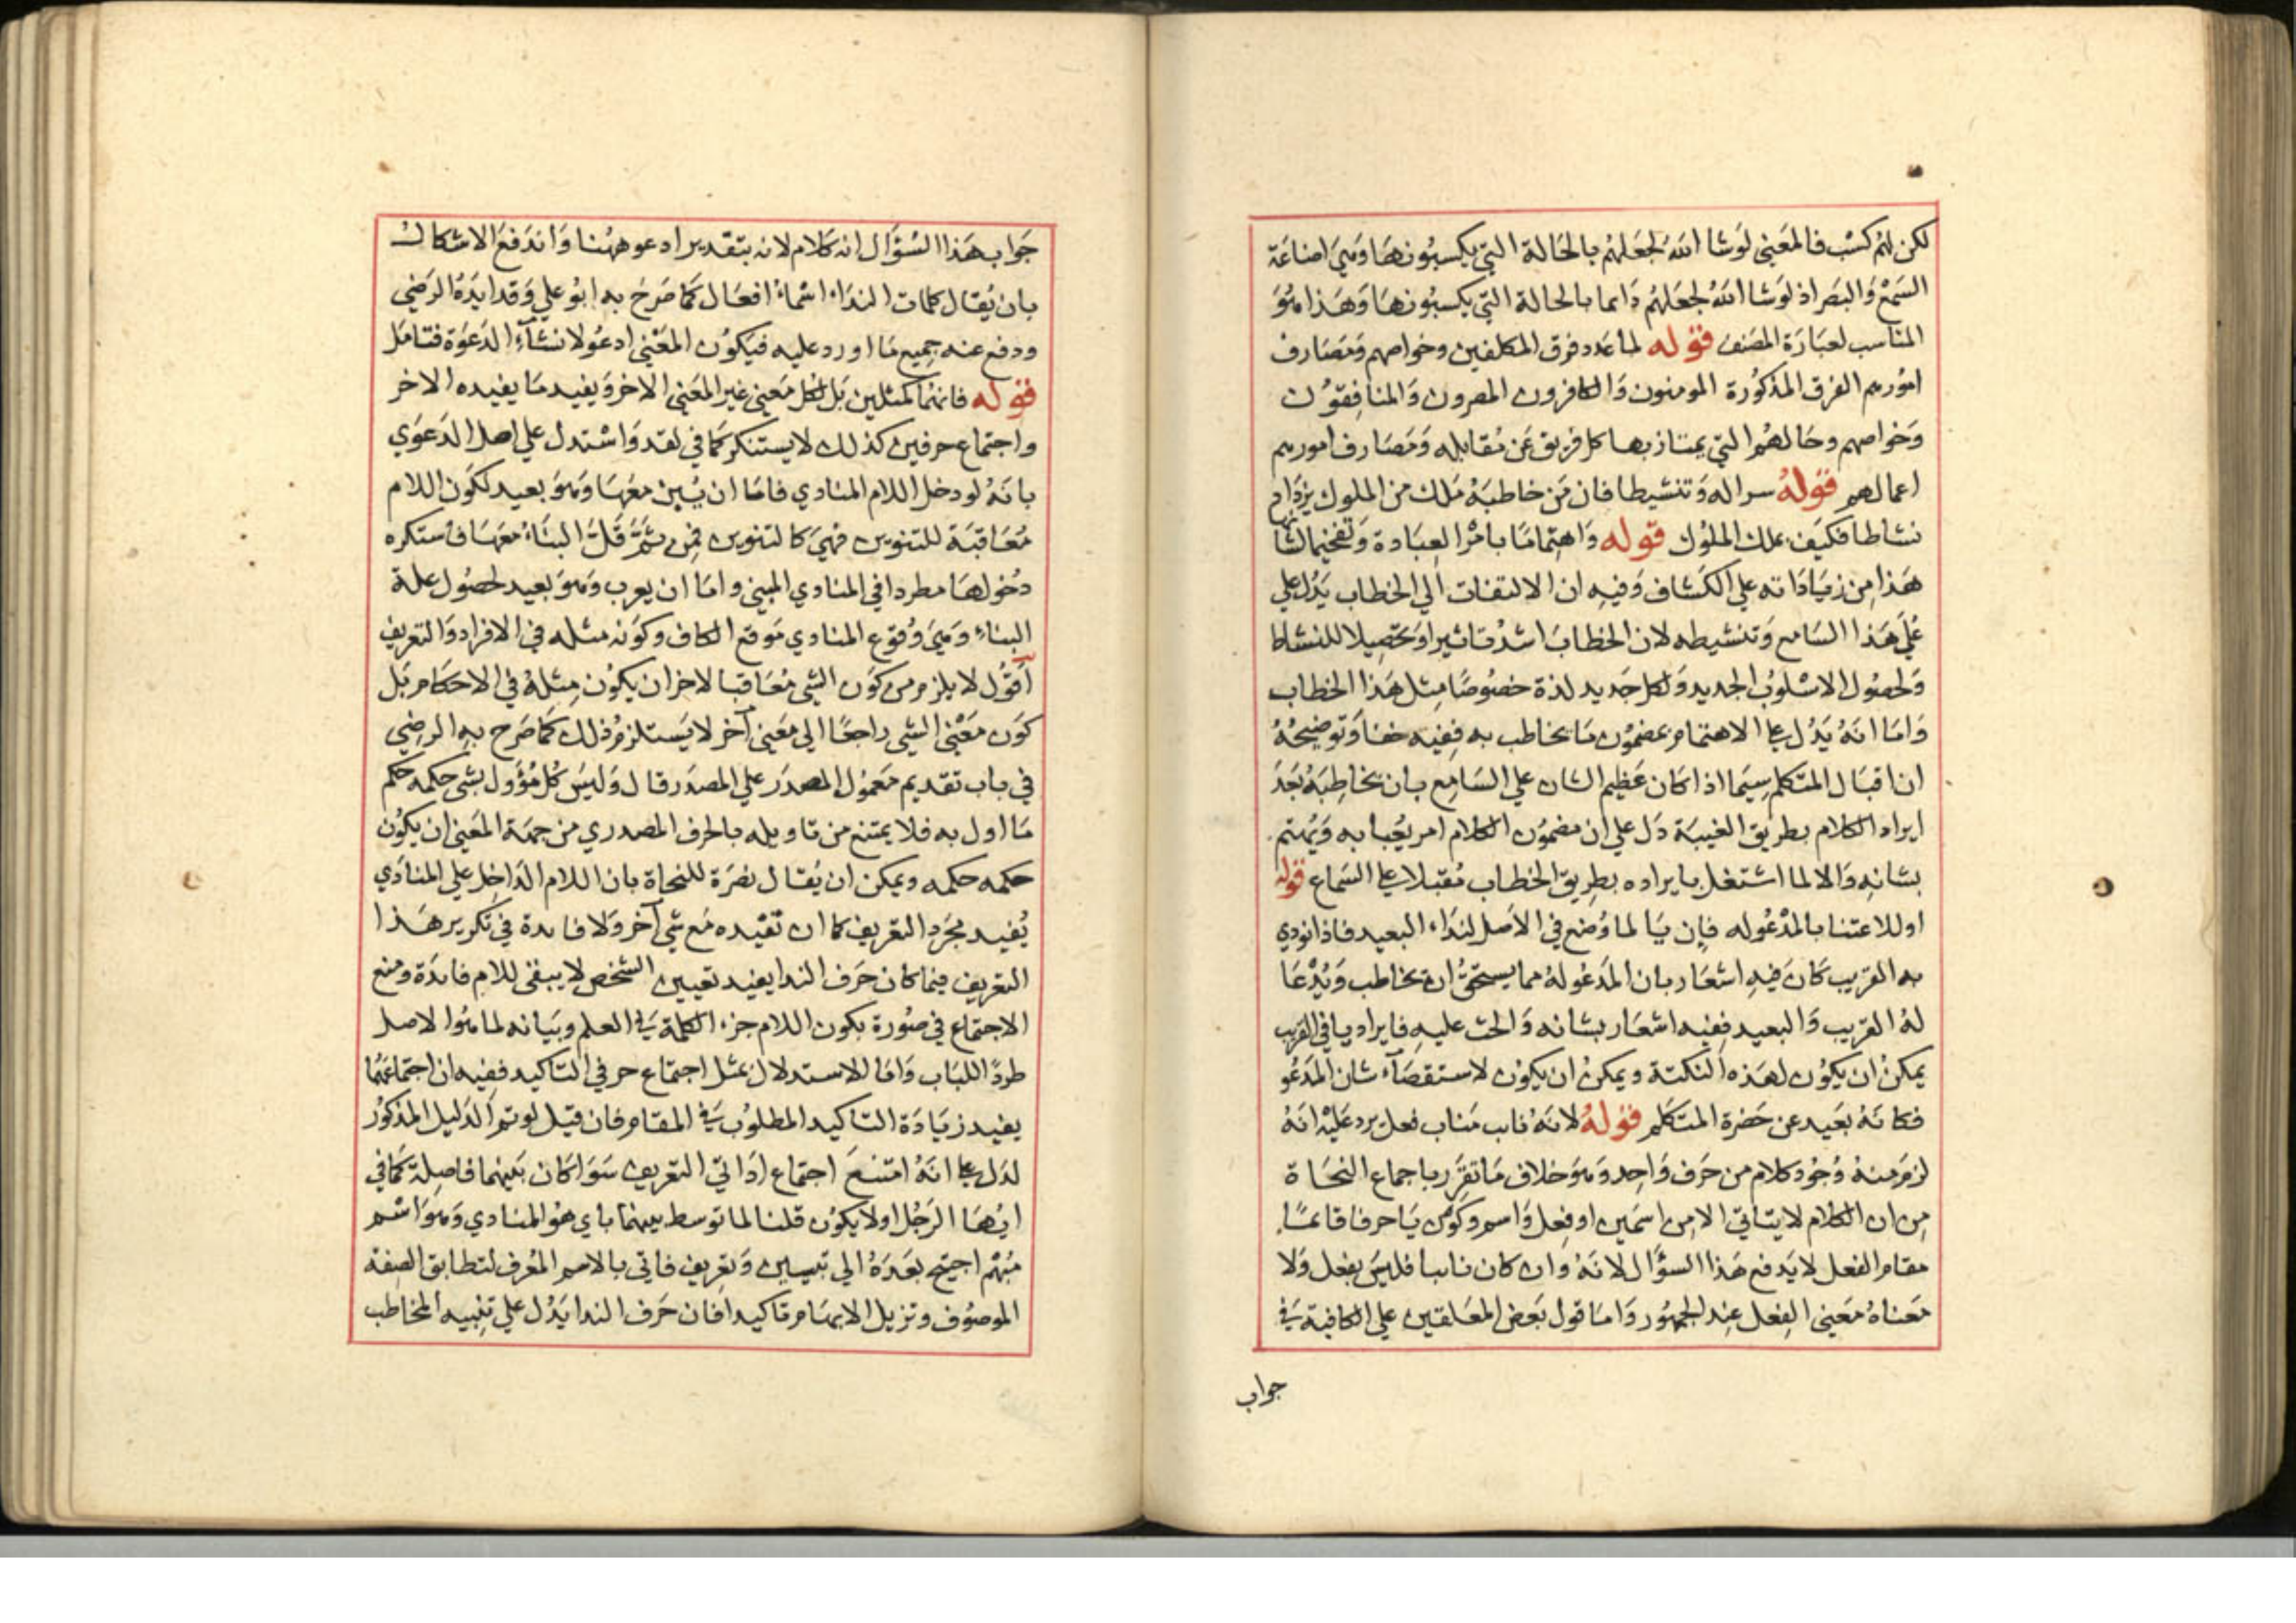 لكن لهم كسب فالمعنى لوشا الله لجعلهم بالحالة التي يكسبونها وهي اضاعة
السمع والبصر اذ لوشا الله لجعلهم دايما بالحالة التي يكسبونها وهذا هو
المناسب لعبارة المصنف قوله لما عدد فرق المكلفين وخواصهم ومصارف
امورهم الفرق المذكورة المومنون والكافرون المصرون والمنافقون
وخواصهم وحالهم التي يمتاز بها كل فريق عن مقابله ومصارف امورهم
اعمالهم قوله سراله وتنشيطا فان من خاطبه ملك من الملوك يزداد
نشاطا فكيف بملك الملوك قوله واهتماما بامر العبادة وتفخيما لشانها
هذا من زياداته علي الكشاف وفيه ان الالتفات الي الخطاب يدل علي
علي هذا السامع وتنشيطه لان الخطاب اشد تاثيرا وتحصيلا للنشاط
ولحصول الاسلوب الجديد ولكل جديد لذة خصوصا مثل هذا الخطاب
واما انه يدل علي الاهتمام بمضمون ما يخاطب به ففيه خفا وتوضيحه
ان اقبال المتكلم سيما اذا كان عظيم الشان علي السامع بان يخاطبه بعد
ايراد الكلام بطريق الغيبة دل علي ان مضمون الكلام امر يعبا به ويهتم
بشانه والا لما اشتغل بايراده بطريق الخطاب مقبلا علي السماع قوله
اوللاعتنا بالمدعوله فان يا لما وضع في الاصل لنداء البعيد فاذا نودي
به القريب كان فيه اشعار بان المدعوله مما يستحق ان يخاطب ويدعا
له القريب والبعيد ففيه اشعار بشانه والحث عليه فايراد يا في القريب
يمكن ان يكون لهذه النكتة ويمكن ان يكون لاستقصاء شان المدعو
فكانه بعيد عن حضرة المتكلم قوله لانه ناب مناب فعل يرد عليه انه
لزم منه وجود كلام من حرف واحد وهو خلاف ما تقرر باجماع النحاة
من ان الكلام لا يتاتي الا من اسمين او فعل واسم وكون يا حرفا قائما
مقام الفعل لا يدفع هذا السؤال لانه وان كان نايبا فليس بفعل ولا
معناه معني الفعل عند الجمهور واما قول بعض المعلقين علي الكافية في
جواب
جواب هذا السؤال انه كلام لانه بتقدير ادعو ههنا واندفع الاشكال
بان يقال كلمات النداء اسماء افعال كما صرح به ابو علي وقد ايده الرضي
ودفع عنه جميع ما اورد عليه فيكون المعني ادعو لانشاء الدعوة فتامل
قوله فانهما كمثلين بل لكل معني غير المعني الاخر ويفيد ما يفيده الاخر
واجتماع حرفين كذلك لا يستنكر كما في لقد واستدل علي اصل الدعوي
بانه لو دخل اللام المنادي فاما ان يبين معها وهو بعيد لكون اللام
معاقبة للتنوين فهي كالتنوين فمن ثم قل البناء معها فاستكره
دخولها مطردا في المنادي المبني واما ان يعرب وهو بعيد لحصول علة
البناء وهي وقوع المنادي موقع الكاف وكونه مثله في الافراد والتعريف
اقول لا يلزم من كون الشي معاقبا لاخر ان يكون مثله في الاحكام بل
كون معني الشي راجعا الي معني آخر لا يستلزم ذلك كما صرح به الرضي
في باب تقديم معمول المصدر علي المصدر قال وليس كل مؤول بشي حكمه حكم
ما اول به فلا يمتنع من تاويله بالحرف المصدري من جهة المعني ان يكون
حكمه حكمه ويمكن ان يقال نصرة للنحاة بان اللام الداخل علي المنادي
يفيد مجرد التعريف كما ان تقيده مع شي آخر ولا فايدة في تكرير هذا
التعريف فيما كان حرف الندا يفيد تعيين الشخص لا يبقي للام فايدة ومنع
الاجتماع في صورة بكون اللام جزء الكلمة في العلم وبيانه لما هو الاصل
طردا للباب واما الاستدلال بمثل اجتماع حرفي التاكيد ففيه ان اجتماعهما
يفيد زيادة التاكيد المطلوب في المقام فان قيل لو تم الدليل المذكور
لدل علي انه امتنع اجتماع اداتي التعريف سوا كان بينهما فاصلة كما في
ايها الرجل اولا يكون قلنا لما توسط بينهما باي هو المنادي وهو اسم
مبهم احتيج بعده الي تبيين وتعريف فاتي بالاسم المعرف لتطابق الصفة
الموصوف وتزيل الابهام وتاكيدا فان حرف الندا يدل علي تنبيه المخاطب